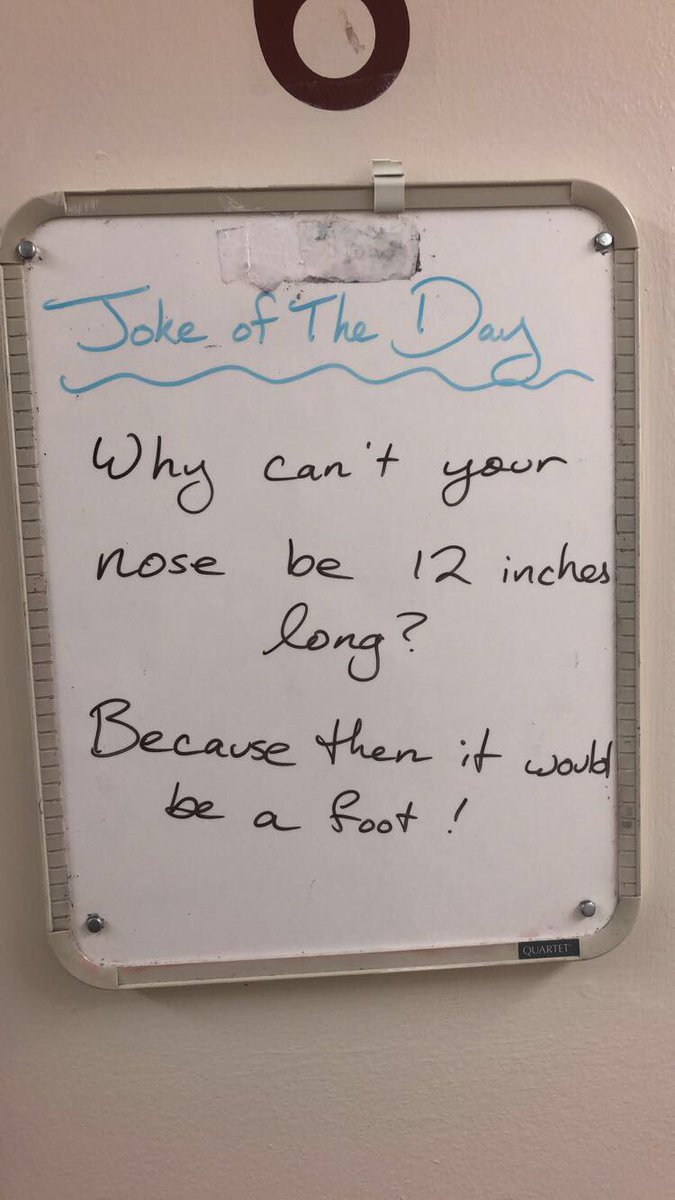 6
Joke of The Day
Why can't your
nose be 12 inches
long?
Because then it would
be a foot!
QUARTET